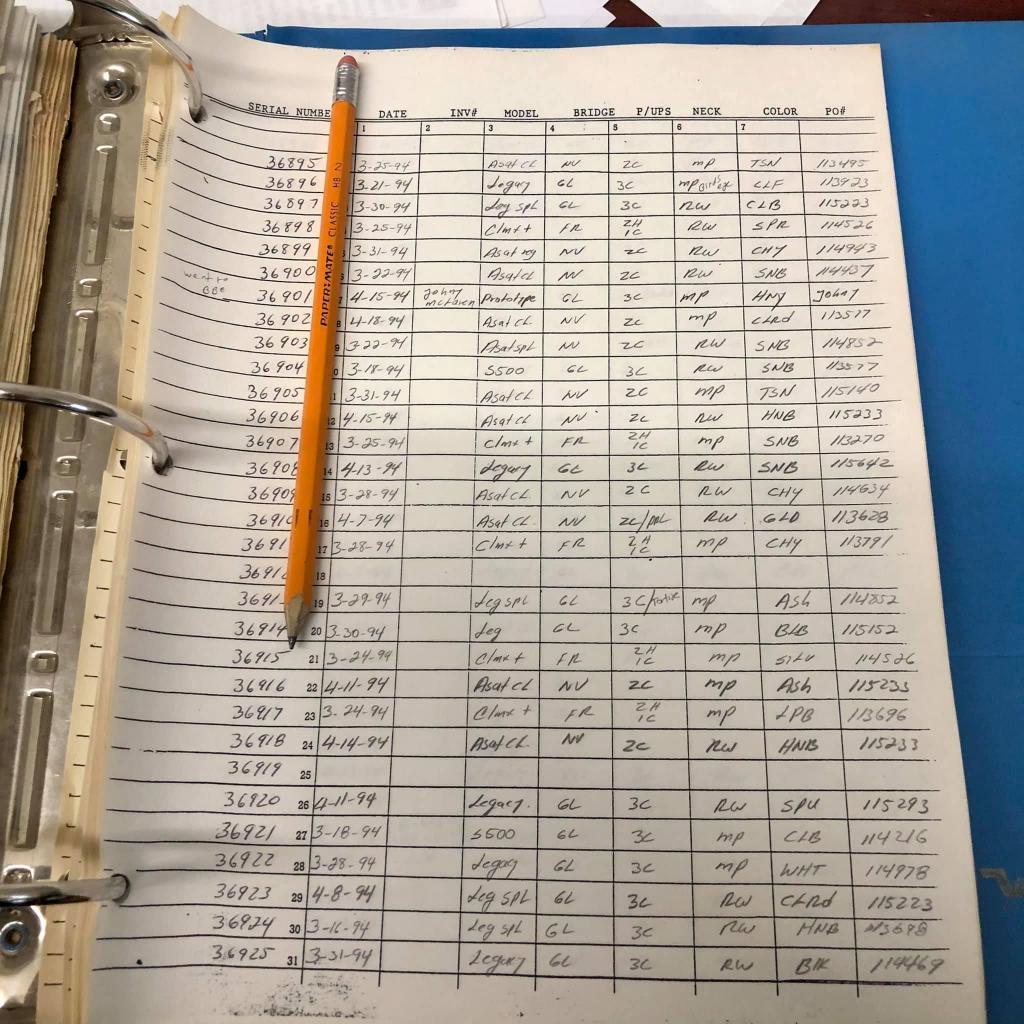 SERIAL NUMBE DATE INV# MODEL BRIDGE P/UPS NECK COLOR PO#
1 2 3 4 5 6 7
36895 3-25-94 Asat CL NV 2C mp TSN 113495
36896 3-21-94 Legacy GL 3C mp Birds eye CLF 113923
36897 3-30-94 Leg SPL GL 3C RW CLB 115223
36898 3-25-94 Clmx + FR 2H 1C RW SPR 114526
36899 3-31-94 Asat NV 2C RW CHY 114943
36900 3-22-94 Asat CL NV 2C RW SNB 114437
went to BBE 36901 7 4-15-94 Johny Prototype GL 3C mp HNY Johny
36902 8 4-18-94 Asat CL NV 2C mp CLRd 113577
36903 9 3-22-94 Asat SPL NV 2C RW SNB 114852
36904 0 3-18-94 S500 GL 3C RW SNB 113577
36905 1 3-31-94 Asat CL NV 2C mp TSN 115140
36906 12 4-15-94 Asat CL NV 2C RW HNB 115233
36907 13 3-25-94 Clmx + FR 2H 1C mp SNB 113270
36908 14 4-13-94 Legacy GL 3C RW SNB 115642
36909 15 3-28-94 Asat CL NV 2C RW CHY 114634
3691 16 4-7-94 Asat CL. NV RW GLD 113628
3691 17 3-28-94 Clmx + FR 2H 1C mp CHY 113791
3691 18
3691 19 3-29-94 Leg SPL GL mp Ash 114852
36914 20 3-30-94 Leg GL 3C mp BLB 115152
36915 21 3-24-94 Clmx + FR 2H 1C mp SILV 114526
36916 22 4-11-94 Asat CL NV 2C mp Ash 115233
36917 23 3-24-94 Clmx + FR 2H 1C mp LPB 113696
36918 24 4-14-94 Asat CL NV 2C RW HNB 115233
36919 25
36920 26 4-11-94 Legacy. GL 3C RW SPU 115293
36921 27 3-18-94 S500 GL 3C mp CLB 114216
36922 28 3-28-94 Legacy GL 3C mp WHT 114978
36923 29 4-8-94 Leg SPL GL 3C RW CLRd 115223
36924 30 3-16-94 Leg SPL GL 3C RW HNB
36925 31 3-31-94 Legacy GL 3C RW Blk 114469
PAPER:MATE® CLASSIC HB 2